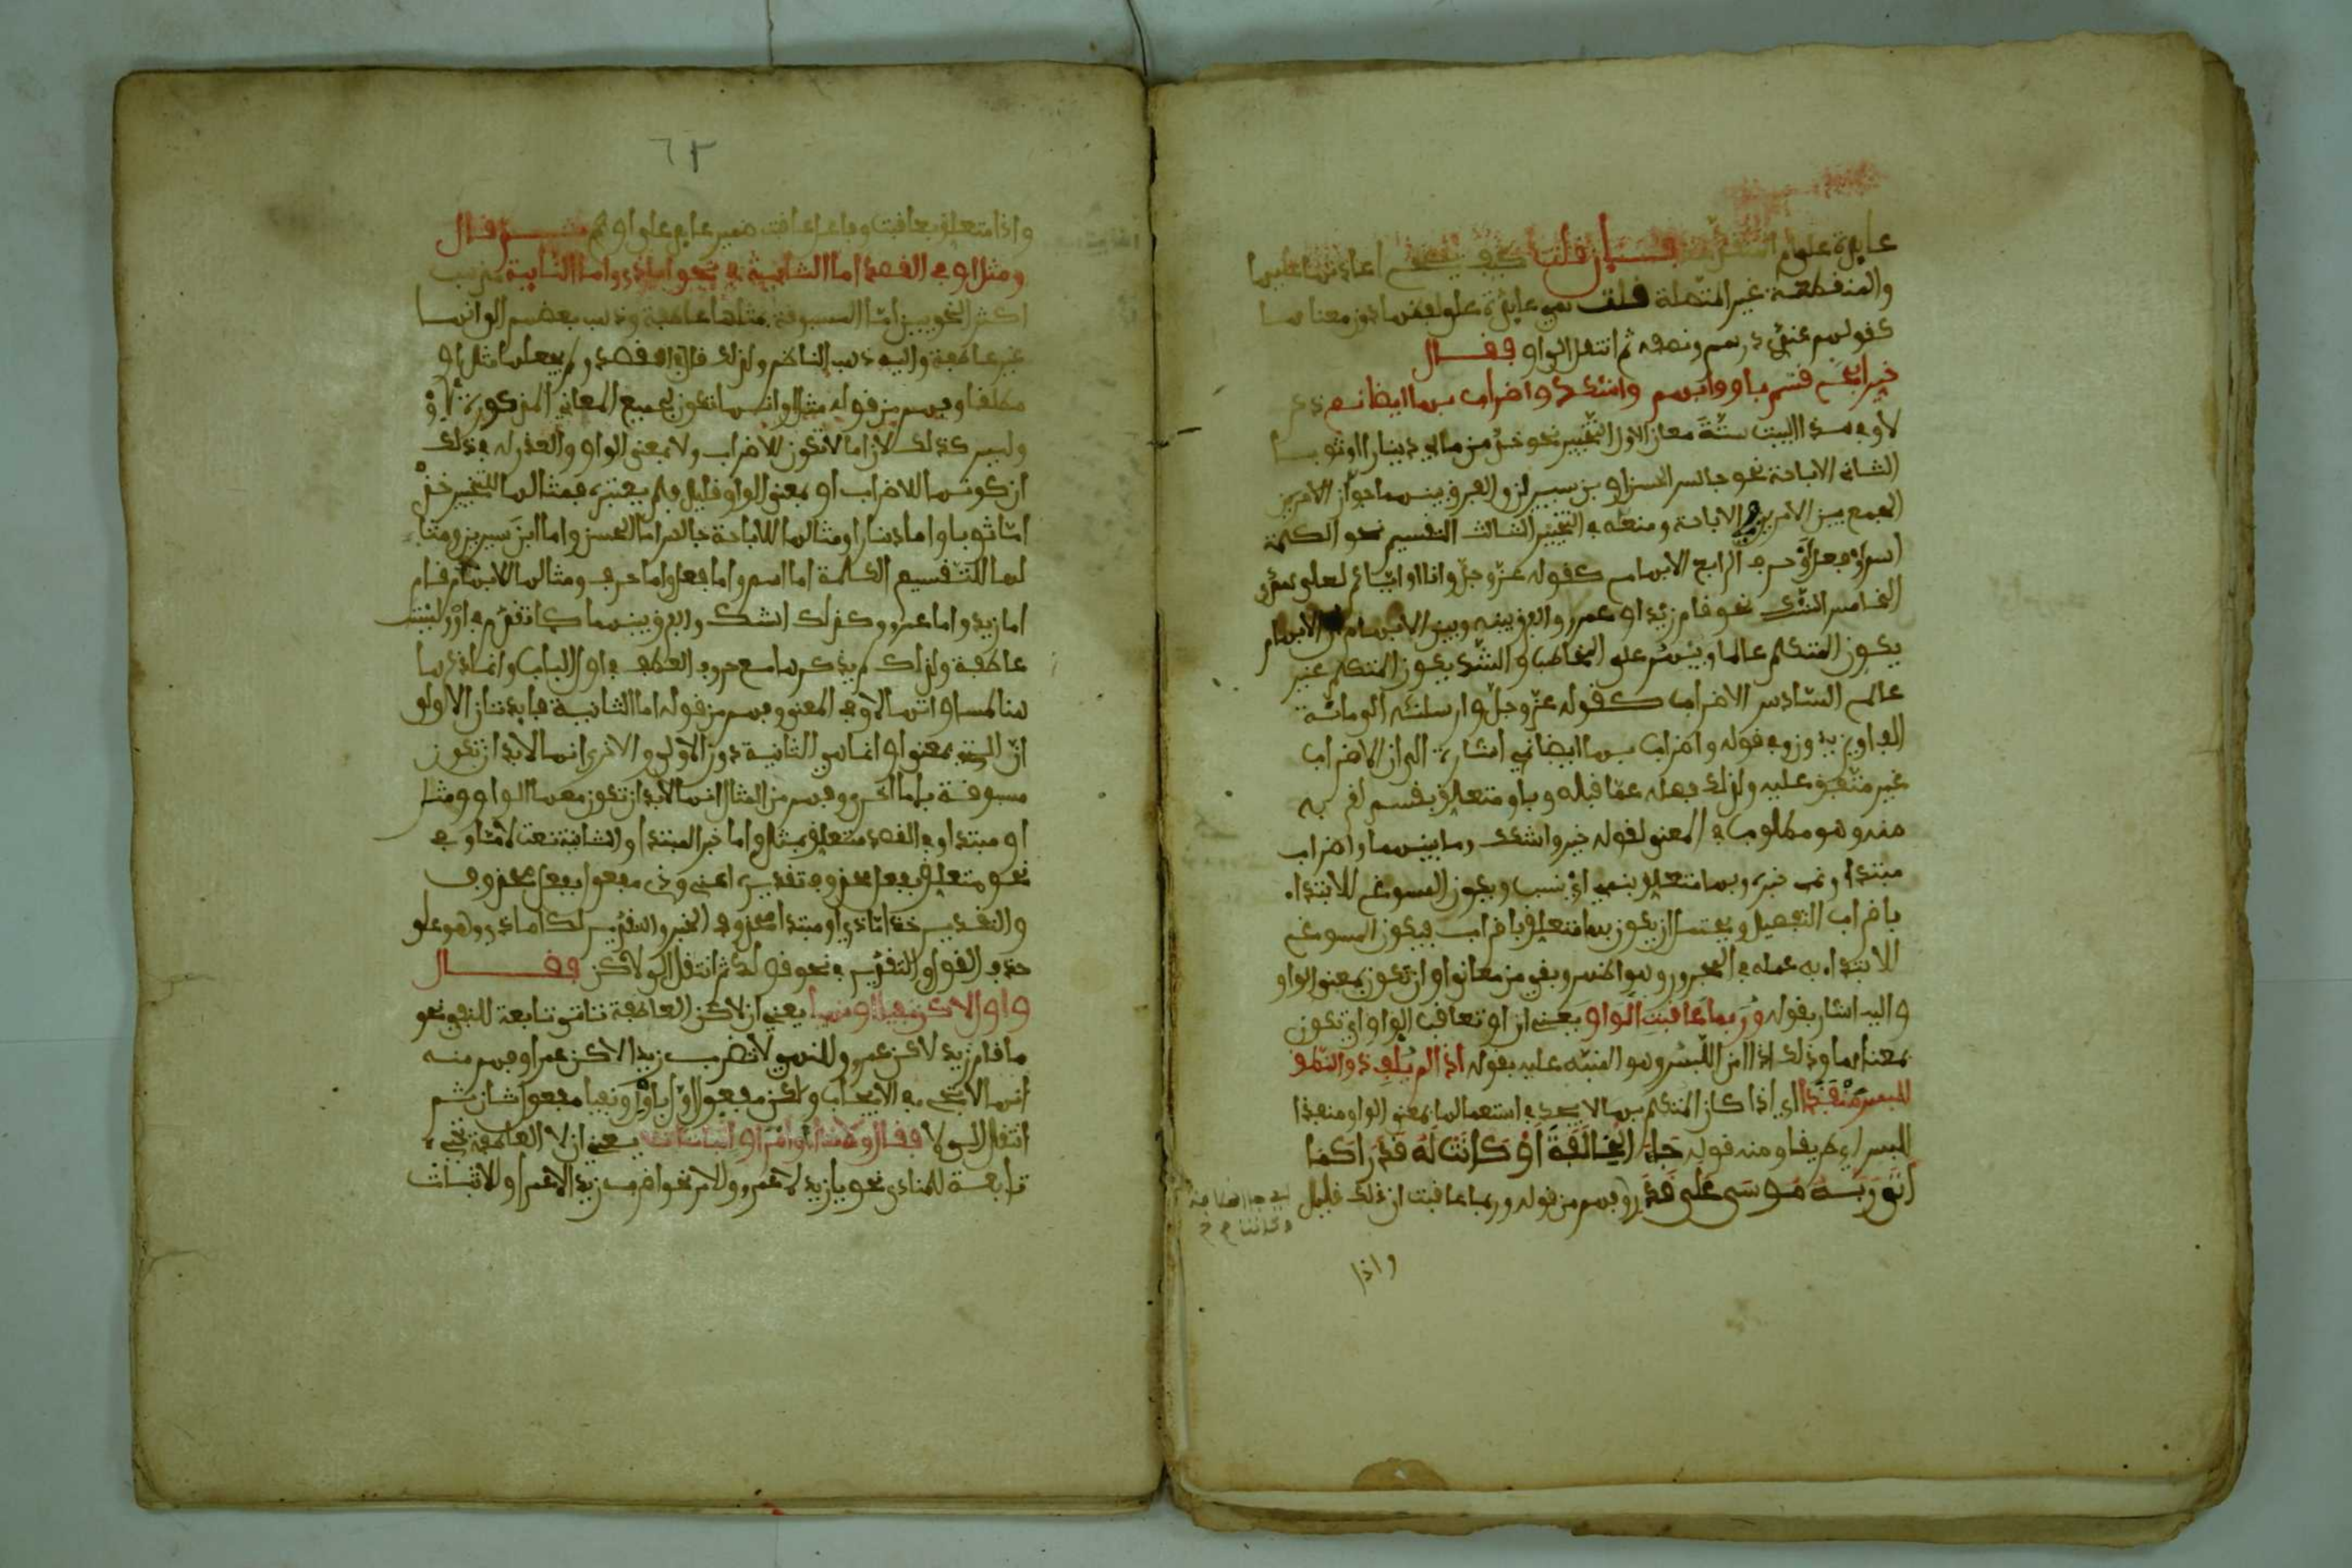 عايدة على ام المتصلة فان قلت كيف يصح اعادتها عليها
والمنفطعة غير المتصلة فلت هي عايدة على لفظها دون معناها
كفولهم عندي درهم ونصفه ثم انتفل الى او ففال
خير ابح فسم باو وابهم واشكك واضراب بها ايضا نمي ذكر
لاو في هذا البيت ستة معان الاول التخيير نحو خذ من مالي دينارا او ثوبا
الثاني الاباحة نحو جالس الحسن او بن سيرين والفرق بينهما جواز الامرين
الجمع بين الامرين في الاباحة ومنعه في التخيير الثالث التفسيم نحو الكلمة
اسم او فعل او حرف الرابع الابهام كفوله عز وجل وانا او اياكم لعلى هدى
الخامس الشك نحو فام زيد او عمرو والفرق بينه وبين الابهام ان الابهام
يكون المتكلم عالما ويبهم على المخاطب والشك يكون المتكلم غير
عالم السادس الاضراب كفوله عز وجل وارسلناه الى مائة
الف او يزيدون وفي فوله واضراب بها ايضا نمي اشارة الى ان الاضراب
غير متفق عليه ولذلك فصله عما فبله وباو متعلق بفسم لفربه
منه وهو مطلوب في المعنى لفوله خير واشكك وما بينهما واضراب
مبتدا ونمي خبره وبها متعلق بنمي اي نسب ويكون المسوغ للابتداء
باضراب التفصيل ويحتمل ان يكون بها متعلق باضراب فيكون المسوغ
للابتداء به عمله في المجرور وهو اظهر وبفي من معاني او ان تكون بمعنى الواو
واليه اشار بفوله وربما عافبت الواو يعني ان او تعافب الواو اي تكون
بمعناها وذلك اذا امن اللبس وهو المنبه عليه بفوله اذا لم يلف ذو النطق
للبس منفذا اي اذا كان المتكلم بها لا يجد في استعمالها بمعنى الواو منفذا
للبس اي طريفا ومنه فوله جاء الخلافة او كانت له فدرا كما
اتى ربه موسى على فدر وفهم من فوله وربما عافبت ان ذلك فليل
واذا
٦٣
واذا متعلق بعافبت وفاعل عافبت ضمير عايد على او ثم فال
ومثل او في الفصد اما الثانية في نحو اما ذي واما النايية مذهب
اكثر النحويين ان اما المسبوفة بمثلها عاطفة وذهب بعضهم الى انها
غير عاطفة واليه ذهب الناظم ولذلك فال في الفصد ولم يجعلها مثل او
مطلفا وفهم من فوله مثل او انها تكون لجميع المعاني المذكورة لاو
وليس كذلك لان اما لا تكون للاضراب ولا بمعنى الواو والعذر له في ذلك
ان كونها للاضراب او بمعنى الواو فليل فلم يعتبره فمثالها للتخيير خذ
اما ثوبا واما دينارا ومثالها للاباحة جالس اما الحسن واما ابن سيرين ومثا
لها للتفسيم الكلمة اما اسم واما فعل واما حرف ومثالها للابهام فام
اما زيد واما عمرو وكذلك الشك والفرق بينهما كما تفدم في او وليست
عاطفة ولذلك لم يذكرها مع حروف العطف في اول الباب وانما ذكرها
هنا لمساواتها لاو في المعنى وفهم من فوله اما الثانية فايدتان الاولى
ان التي بمعنى او انما هي الثانية دون الاولى والاخرى انها لا بد ان تكون
مسبوفة باما اخرى وفهم من المثال انها لا بد ان تكون معها الواو ومثل
او مبتدا وفي الفصد متعلق بمثل واما خبر المبتدا والثانية نعت لاما وفي
نحو متعلق بفعل محذوف تفديره اعني وذي مفعول بفعل محذوف
والتفدير خذ اما ذي او مبتدا محذوف الخبر والتفدير لك اما ذي وهو على
حذف الفول والتفدير في نحو فولك ثم انتفل الى لاكن ففال
واول لاكن نفيا او نهيا يعني ان لاكن العاطفة تاتي تابعة للنفي نحو
ما فام زيد لاكن عمرو وللنهي لا تضرب زيدا لاكن عمرا وفهم منه
انها لا تجيء في الايجاب ولاكن مفعول اول باول ونفيا مفعول ثان ثم
انتفل الى لا ففال ولا نداء او امرا او اثباتا تلا يعني ان لا العاطفة تجيء
تابعة للمنادى نحو يا زيد لا عمرو وللامر نحو اضرب زيدا لا عمرا وللاثبات